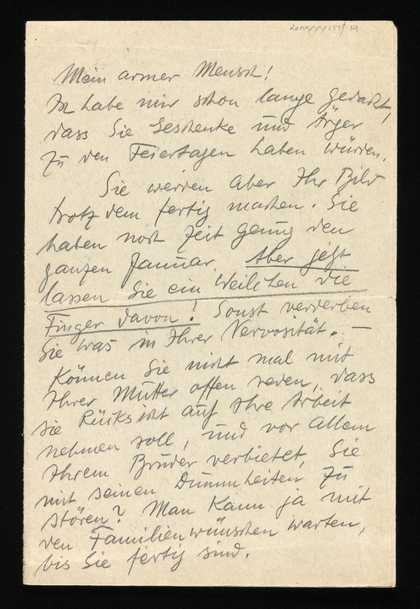 Mein armer Mensch!
Ich habe mir schon lange gedacht,
dass Sie Geschenke und Ärger
zu den Feiertagen haben würden.
Sie werden aber Ihr Bild
trotzdem fertig machen. Sie
haben noch Zeit genug den
ganzen Januar. Aber jetzt
lassen Sie ein Weilchen die
Finger davon! Sonst verderben
Sie was in Ihrer Nervosität. –
Können Sie nicht mal mit
Ihrer Mutter offen reden, dass
sie Rücksicht auf Ihre Arbeit
nehmen soll, und vor allem
Ihrem Bruder verbietet, Sie
mit seinen Dummheiten zu
stören? Man kann ja mit
den Familienwünschen warten,
bis Sie fertig sind.